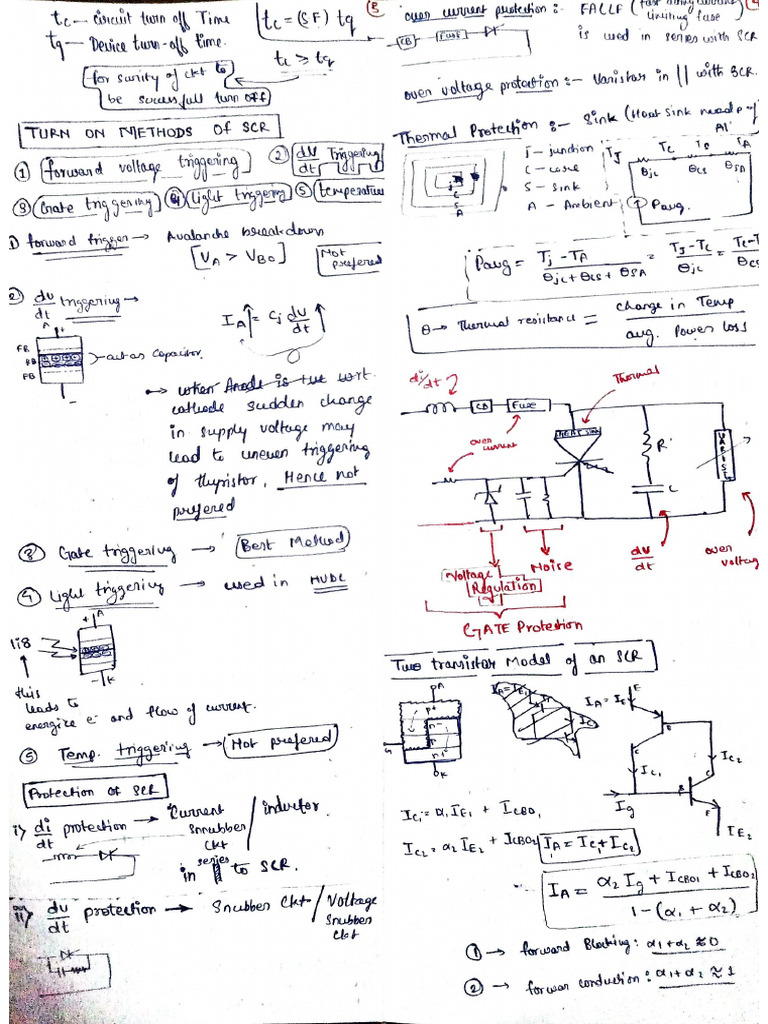 tc — Circuit turn off Time
tq — Device turn-off time.
tc = (SF) tq
tc ≥ tq
for surity of ckt to
be sucessfull turn off
TURN ON METHODS OF SCR
① forward voltage triggering
② dv/dt Triggering
③ Gate triggering
④ Light triggering
⑤ temperature
① forward trigger → Avalanche breakdown
[VA > VBO]
Not prefered
② dv/dt triggering →
A
FB
RB
FB
act as capacitor.
IA = Cj dv/dt
→ when Anode is +ve wrt.
cathode sudden change
in supply voltage may
lead to uneven triggering
of thyristor, Hence not
prefered
③ Gate triggering → Best Method
④ Light triggering → used in HVDC
+ A
- K
this
leads to
energize e⁻ and flow of current.
⑤ Temp. triggering → Not prefered
Protection of SCR
i) di/dt protection → Current Snnubber ckt / inductor
in series to SCR.
ii) dv/dt protection → Snubber Ckt / Voltage Snubber Ckt
over current protection :- FACLF (fast acting current
limiting fuse)
is used in series with SCR
CB Fuse
over voltage protection :- Varistor in || with SCR.
Thermal Protection :- Sink (Heat sink made of
Al)
j - junction
C - case
S - sink
A - Ambient
j
C
S
A
TJ TC TS TA
θjc θcs θSA
Pavg.
Pavg = Tj - TA / θjc + θcs + θSA = TJ - TC / θjc =
θ → Thermal resistance = change in Temp / avg. Power loss
di/dt
CB Fuse
Thermal
HEAT SINK
over
current
R
C
VARISTOR
Voltage
Regulation
Noise
dv/dt
over
voltag
GATE Protection
Two transistor Model of an SCR
A
p+
n-
p
n+
G
K
IA = IE1
IA = IE
E
B
C
IC1
IC2
C
B
E
Ig
IE2
IC1 = α1 IE1 + ICBO1
IC2 = α2 IE2 + ICBO2
IA = IC1 + IC2
IA = α2 Ig + ICBO1 + ICBO2 / 1 - (α1 + α2)
① → forward Blocking : α1+α2 ≈ 0
② → forwar conduction : α1+α2 ≈ 1